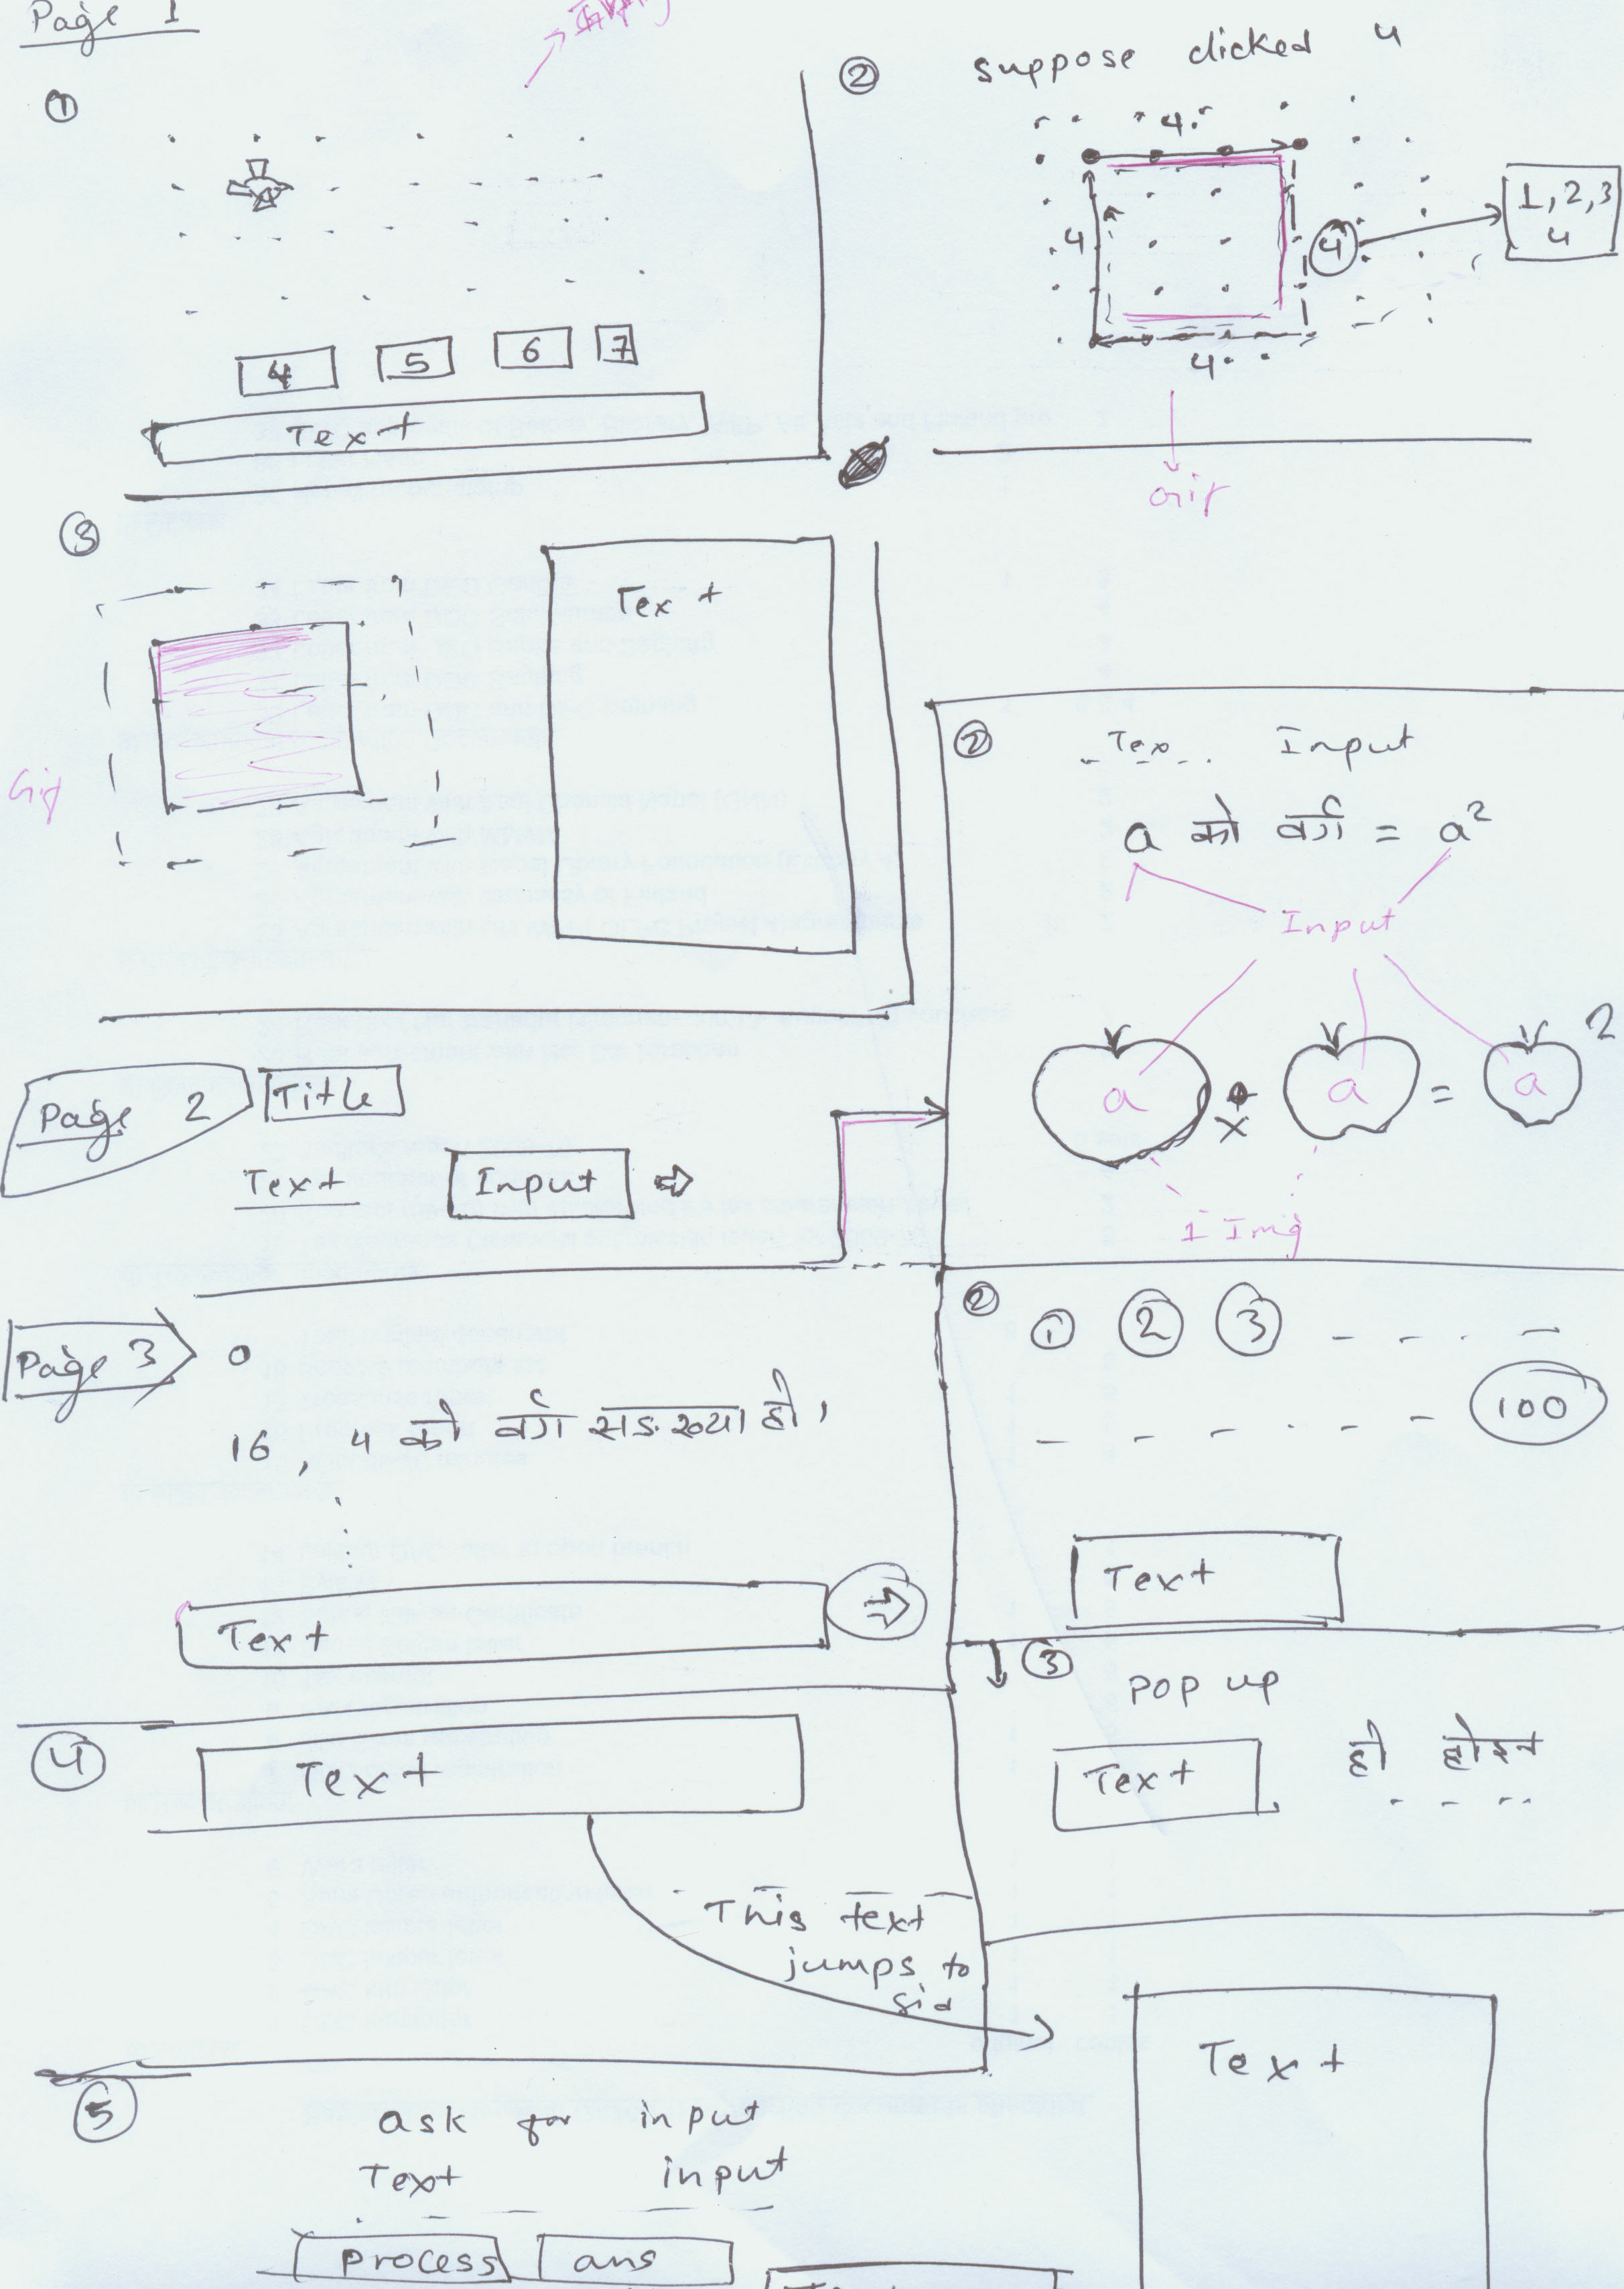 Page 1
①
4 5 6 7
Text
②
suppose clicked 4
4
4
4
1, 2, 3
4
4
③
Text
Gif
Page 2
Title
Text Input
②
Tex Input
a को वर्ग = a²
Input
a x a = a 2
1 Img
Page 3
16, 4 को वर्ग सङ्ख्या हो।
Text
②
① ② ③
100
Text
③
POP up
Text हो होइन
④
Text
This text
jumps to
Text
⑤
ask for input
Text input
Process ans